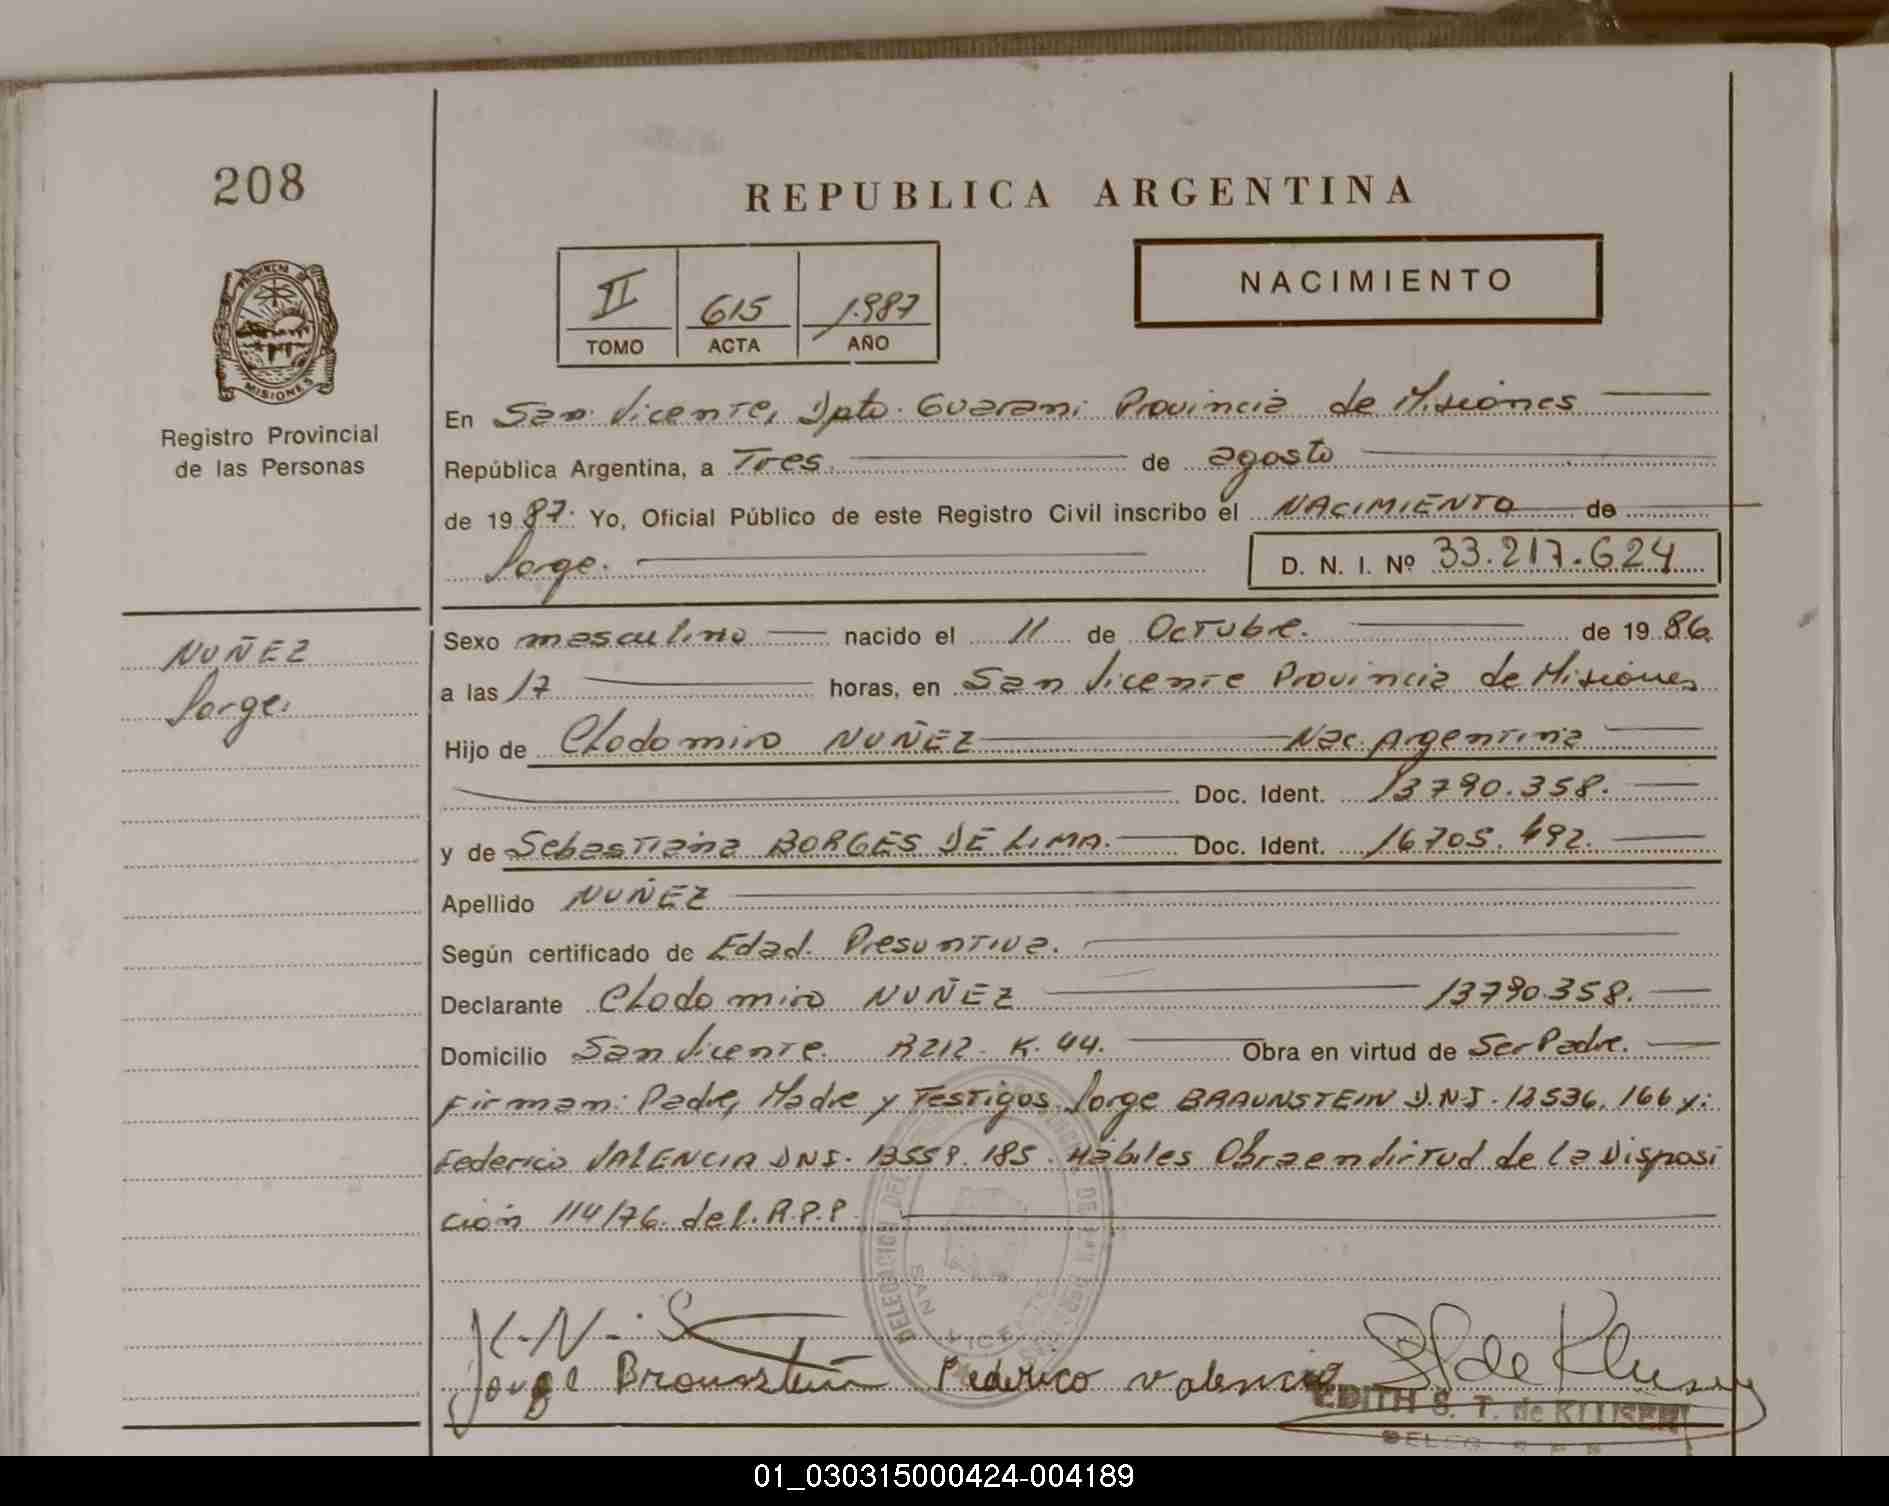 208
REPUBLICA ARGENTINA
II 615 1.987
TOMO ACTA AÑO
NACIMIENTO
PROVINCIA DE
MISIONES
Registro Provincial
de las Personas
En San Vicente, Dpto. Guarani Provincia de Misiones
República Argentina, a Tres. de agosto
de 19 87. Yo, Oficial Público de este Registro Civil inscribo el NACIMIENTO de
Jorge. D. N. I. Nº 33.217.624
NUÑEZ
Jorge.
Sexo masculino nacido el 11 de Octubre. de 19 86.
a las 17 horas, en San Vicente Provincia de Misiones
Hijo de Clodomiro NUÑEZ Nac. Argentina
Doc. Ident. 13790.358.
y de Sebastiana BORGES DE LIMA. Doc. Ident. 16705.492.
Apellido NUÑEZ
Según certificado de Edad. Presuntiva.
Declarante Clodomiro NUÑEZ 13790.358.
Domicilio San Vicente. R212. K. 44. Obra en virtud de Ser Padre.
Firman: Padre, Madre y Testigos Jorge BRAUNSTEIN D.N.I. 12536.166 y:
Federico VALENCIA DNI. 13559.185. Hábiles Obra en Virtud de la Disposi
ción 114/76. del. R.P.P.
DELEGACION DEL
SAN VICENTE
Jorge Braunstein Federico Valencia
EDITH S. T. de KLUSEN
01_030315000424-004189